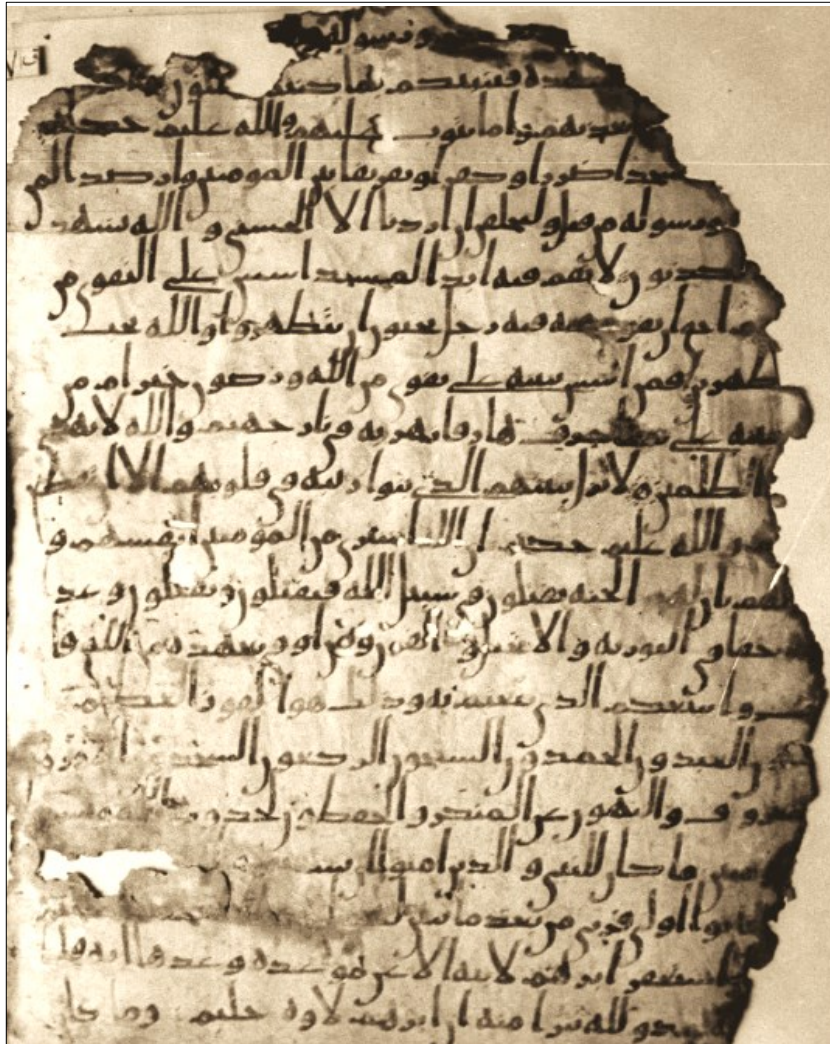 ورسوله
شهده فينبيكم بما كنتم تعملون
يعذبهم واما يتوب عليهم والله عليم حكيم
مسجدا ضررا وكفرا وتفريقا بين المومنين وارصدا لمن
ورسوله من قبل وليحلفن ان اردنا الا الحسنى والله يشهد
لكذبون لا تقم فيه ابدا لمسجد اسس على التقوى من
يوم احق ان تقوم فيه فيه رجل يحبون ان يتطهروا والله يحب
المطهرين افمن اسس بنينه على تقوى من الله ورضون خير ام من
بنينه على شفا جرف هار فانهار به في نار جهنم والله لا يهدي
الظلمين لا يزال بنينهم الذي بنوا ريبة في قلوبهم الا ان تقطع
والله عليم حكيم ان الله اشترى من المومنين انفسهم و
لهم بان لهم الجنة يقتلون في سبيل الله فيقتلون ويقتلون وعدا
حقا في التورية والانجيل والقران ومن اوفى بعهده من الله فا
ستبشروا ببيعكم الذي بيعتم به وذلك هو الفوز العظيم
العبدون الحمدون السيحون الركعون السجدون الامرون
بالمعروف والناهون عن المنكر والحفظون لحدود الله
ما كان للنبي والذين امنوا ان يستغفروا
كانوا اولي قربى من بعد ما تبين
استغفر ابرهيم لابيه الا عن موعدة وعدها اياه فلما
عدو لله تبرا منه ان ابرهيم لاوه حليم وما كان